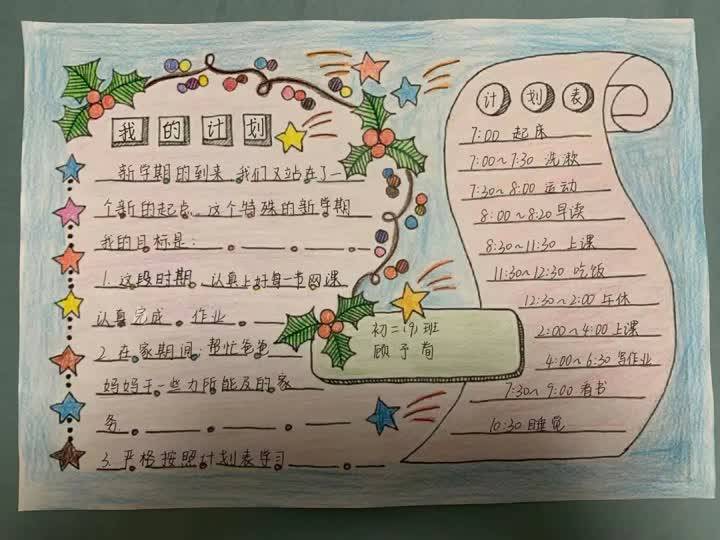 我的计划
新学期的到来,我们又站在了一
个新的起点。这个特殊的新学期
我的目标是:
1. 这段时期,认真上好每一节网课
认真完成 作业
2. 在家期间,帮忙爸爸
妈妈干一些力所能及的家
务
3. 严格按照计划表学习
初二(9)班
顾予荀
计划表
7:00 起床
7:00~7:30 洗漱
7:30~8:00 运动
8:00~8:20 早读
8:30~11:30 上课
11:30~12:30 吃饭
12:30~2:00 午休
2:00~4:00 上课
4:00~6:30 写作业
7:30~9:00 看书
10:30 睡觉